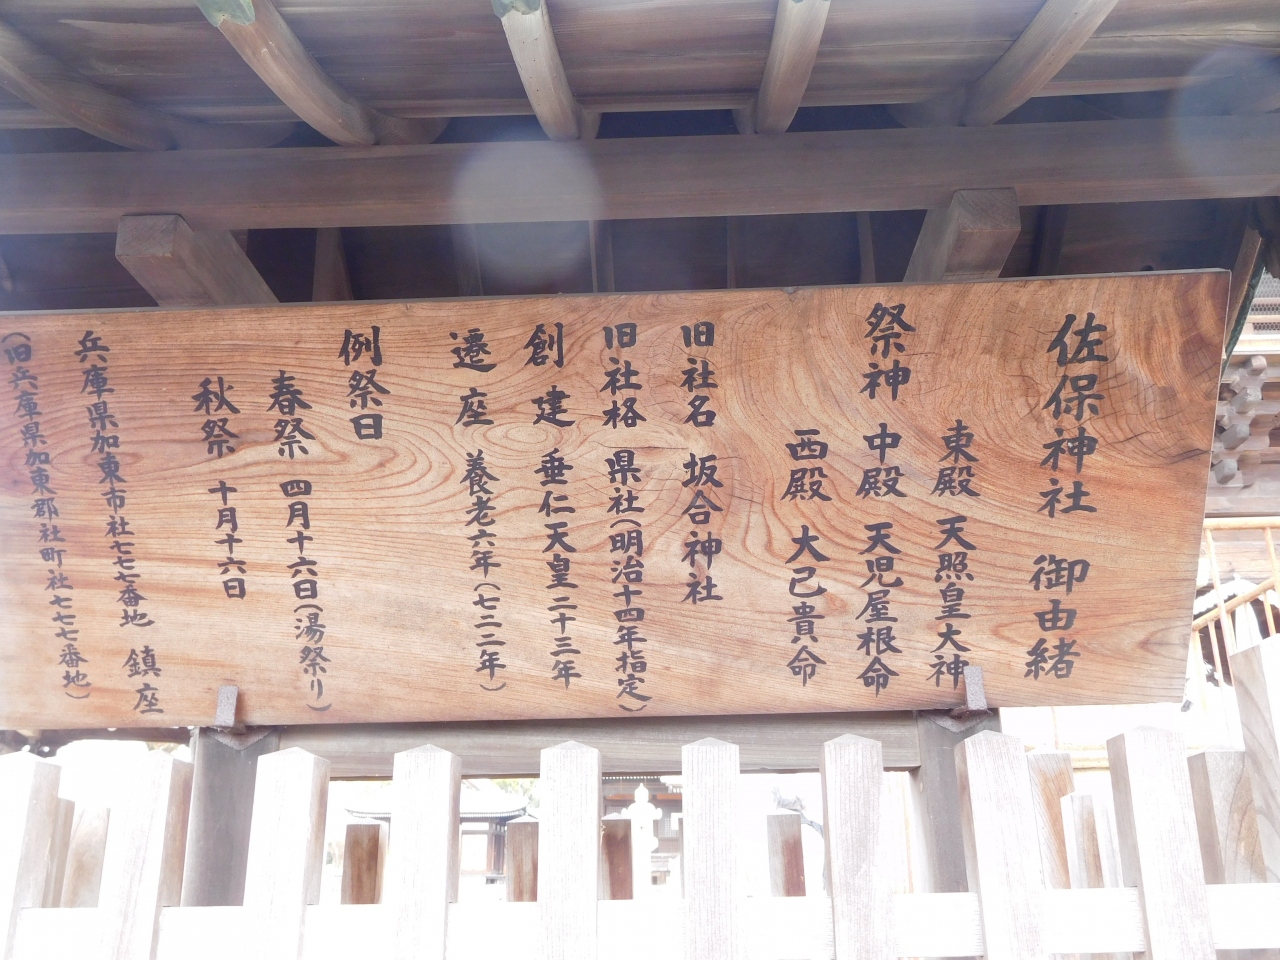 佐保神社 御由緒
東殿 天照皇大神
祭神 中殿 天児屋根命
西殿 大己貴命
旧社名 坂合神社
旧社格 県社(明治十四年指定)
創建 垂仁天皇二十三年
遷座 養老六年(七二二年)
例祭日
春祭 四月十六日(湯祭り)
秋祭 十月十六日
兵庫県加東市社七七七番地 鎮座
(旧兵庫県加東郡社町社七七七番地)